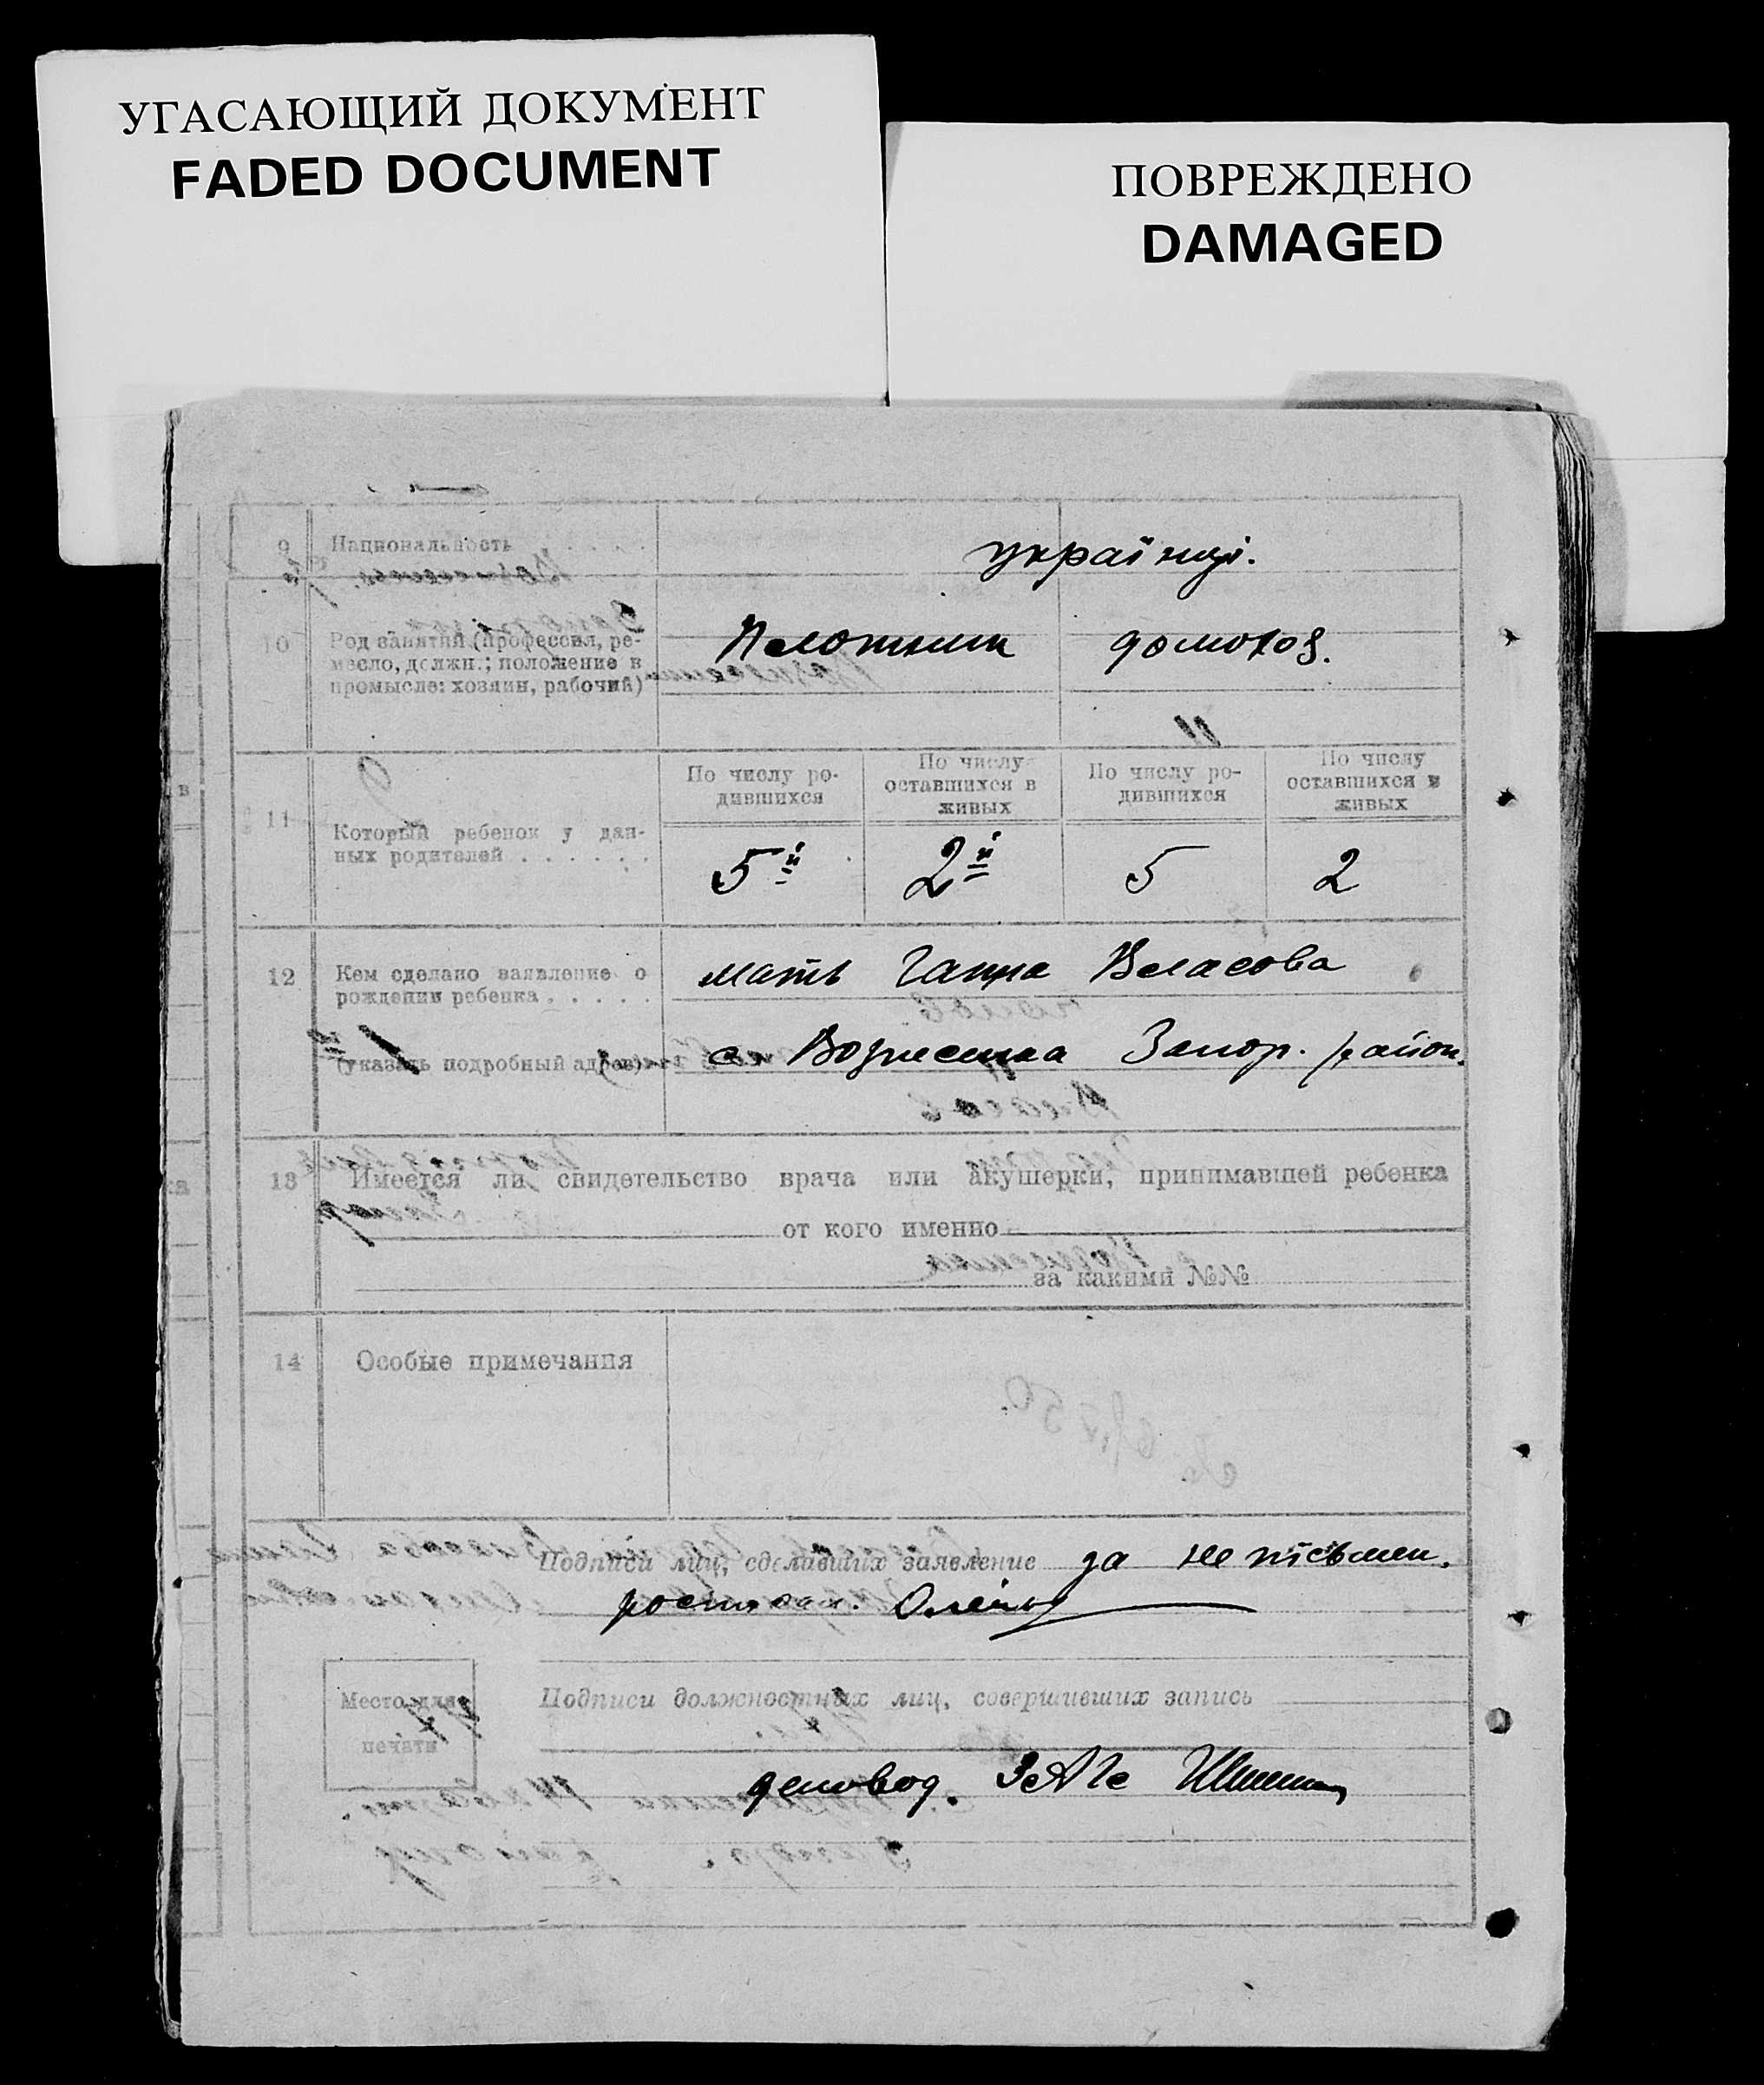 УГАСАЮЩИЙ ДОКУМЕНТ
FADED DOCUMENT
ПОВРЕЖДЕНО
DAMAGED
9 Национальность . . . . українці.
10 Род занятий (профессия, ре-
месло, должн.; положение в
промысле: хозяин, рабочий)
Плотник домохоз.
11 Который ребенок у дан-
ных родителей . . . . . .
По числу ро-
дившихся
По числу
оставшихся в
живых
По числу ро-
дившихся
По числу
оставшихся в
живых
5й 2й 5 2
12 Кем сделано заявление о
рождении ребенка . . . . .
(указать подробный адрес)
мать Ганна Власова
с. Вознесенка Запор. район.
13 Имеется ли свидетельство врача или акушерки, принимавшей ребенка
от кого именно
за какими №№
14 Особые примечания
Подписи лиц, сделавших заявление за не письмен.
Место для
печати
Подписи должностных лиц, совершивших запись
деловод. ЗАГС